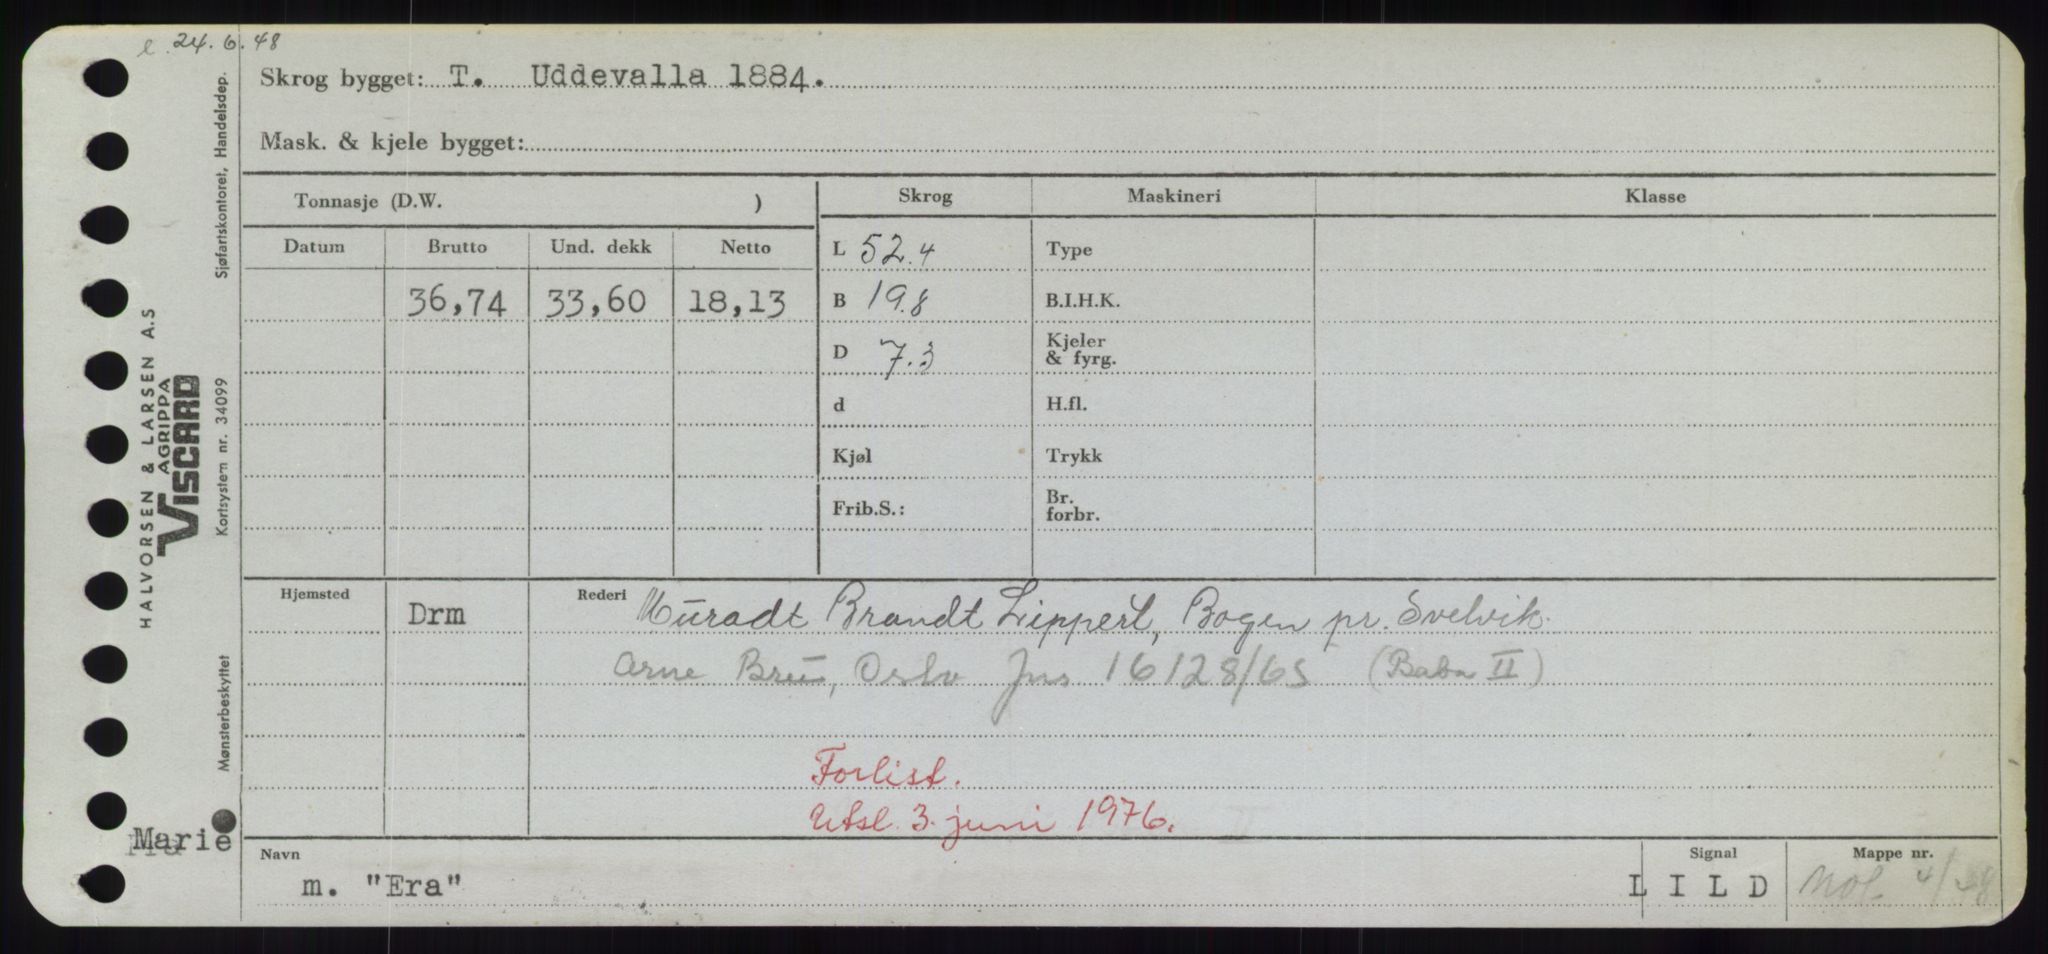 e. 24.6.48
Skrog bygget: T. Uddevalla 1884.
Mask. & kjele bygget:
Tonnasje (D.W. )
Skrog
Maskineri
Klasse
Datum Brutto Und. dekk Netto
36,74 33,60 18,13
L 52.4
B 19.8
D 7.3
d
Kjøl
Frib.S.:
Type
B.I.H.K.
Kjeler
& fyrg.
H.fl.
Trykk
Br.
forbr.
Hjemsted Drm
Rederi Muradt Brandt Lippert, Bogen pr. Svelvik.
Arne Bru, Oslo Jns 16128/65 (Baba II)
Forlist.
Utsl. 3. juni 1976.
II
Marie
Navn
m. "Era"
Signal
L I L D
Mappe nr.
4/48
HALVORSEN & LARSEN A.S
AGRIPPA
VISCARD
Mønsterbeskyttet Kortsystem nr. 34099 Sjøfartskontoret, Handelsdep.